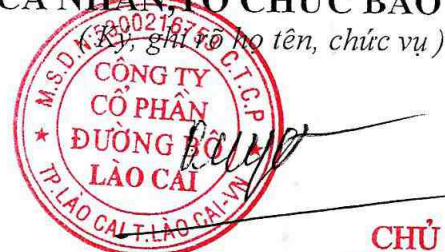 CÁ NHÂN, TỔ CHỨC BÁO
(Ký, ghi rõ họ tên, chức vụ)
M.S.D.N: C.T.C.P
CÔNG TY
CỔ PHẦN
ĐƯỜNG BỘ
LÀO CAI
TP.LÀO CAI-T.LÀO CAI-VN
CHỦ